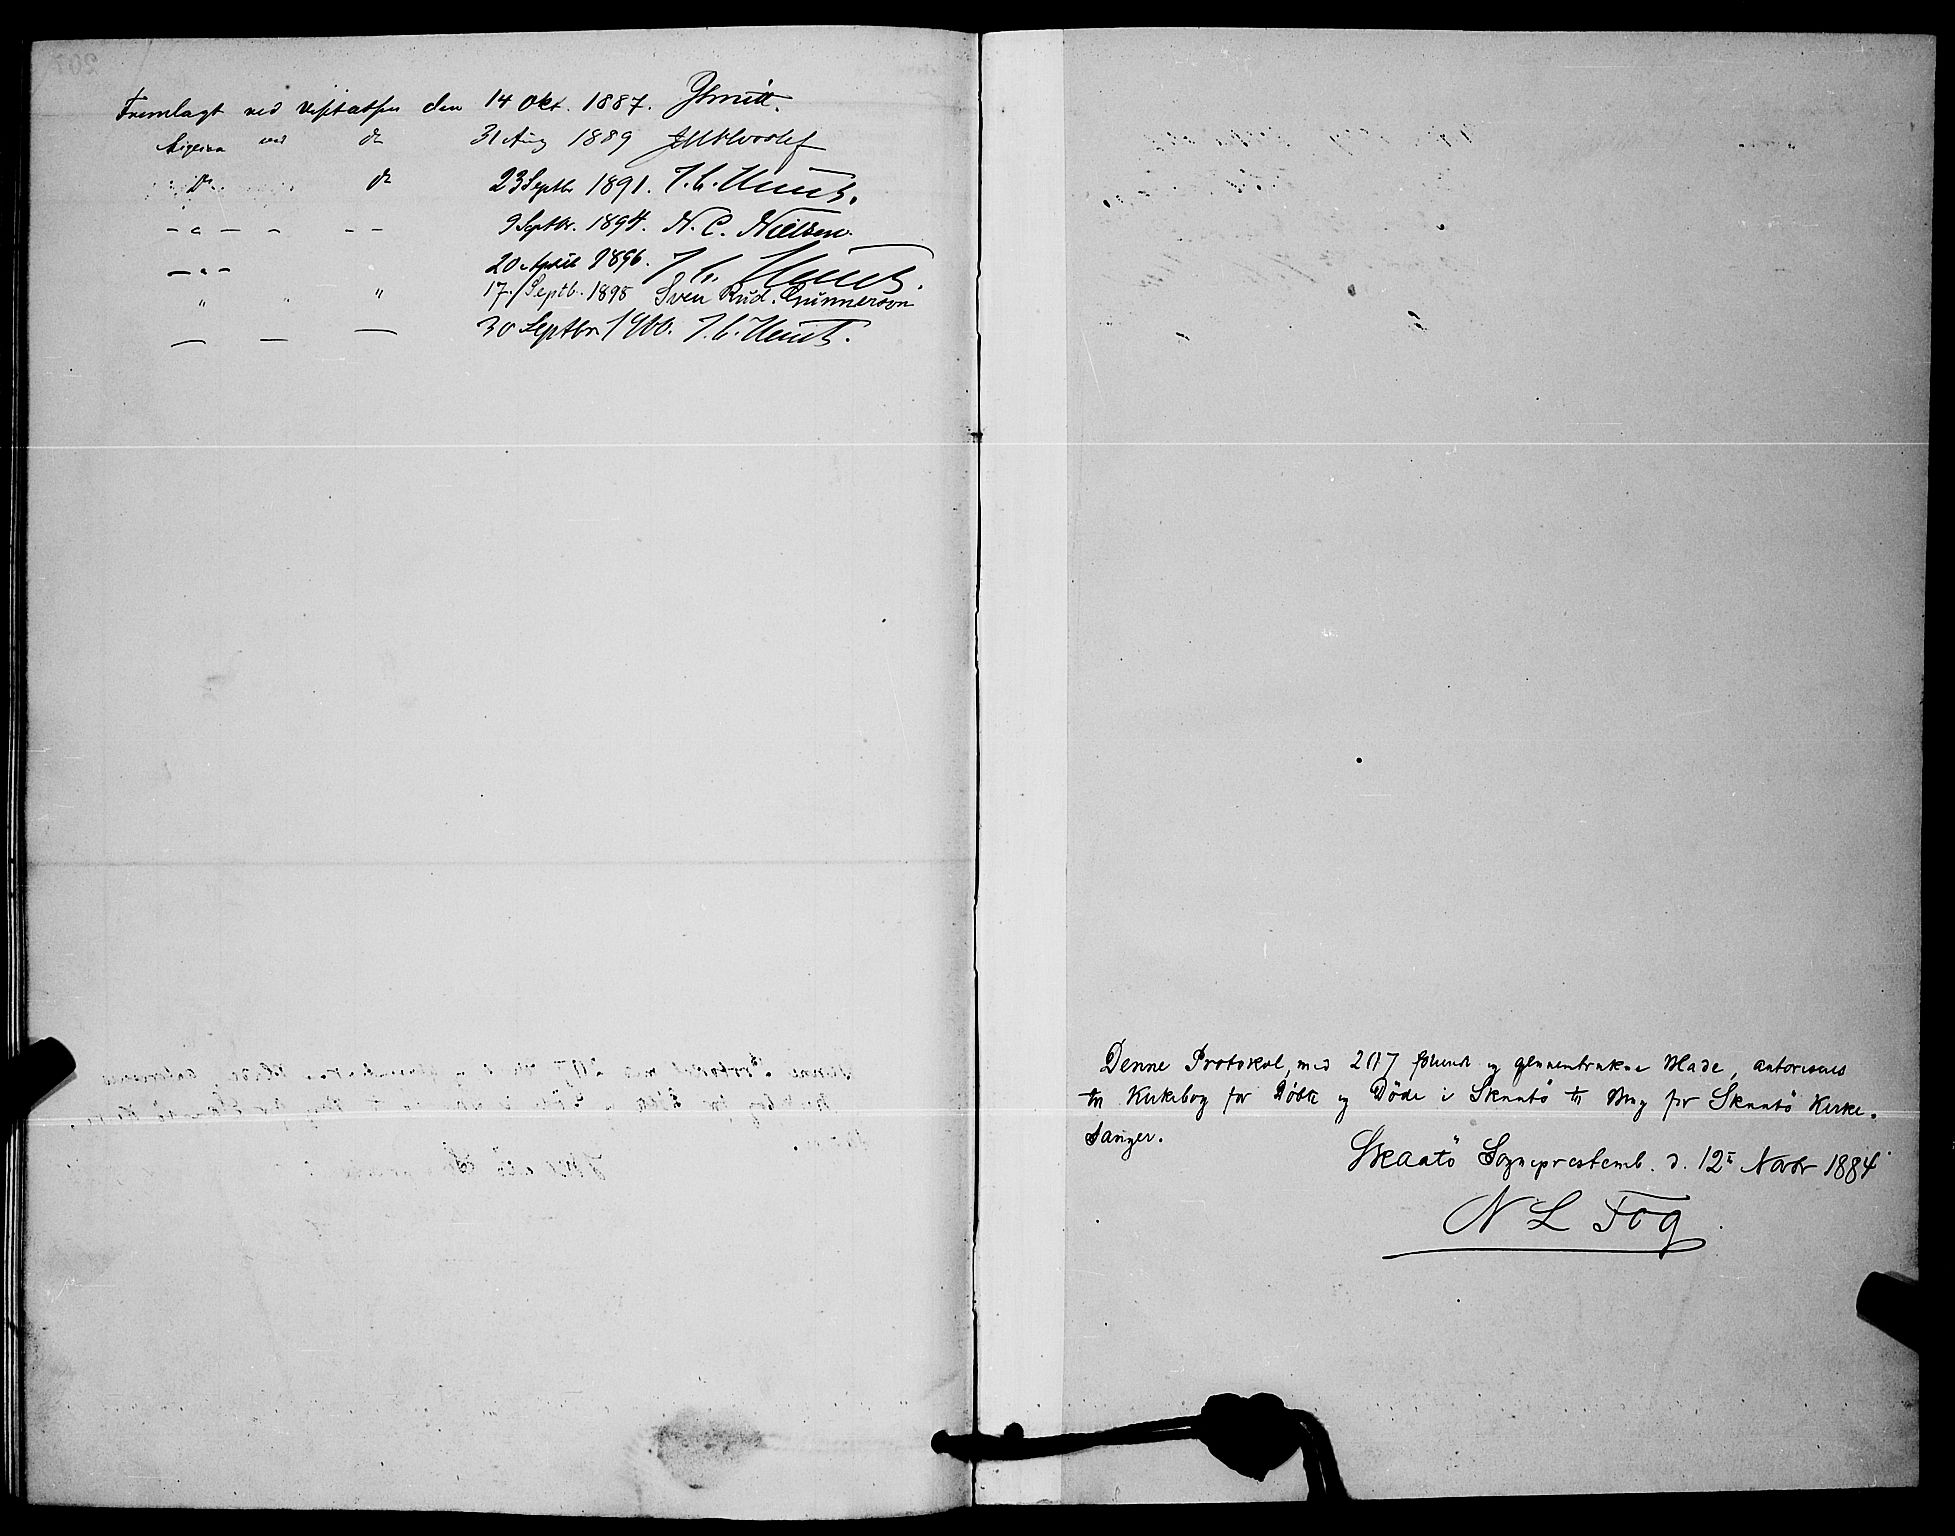 Fremlagt ved Visitatsen den 14 Okt. 1887. JSmitt.
ved do 31 Aug 1889
Do do 23 Septbr 1891. J. C. Heuch.
- " - - - - 9 Septbr. 1894. N. C. Nielsen.
- " - 20 April 1896. J. C. Heuch.
" " " 17./Septb. 1898 Sven Rud. Gunnerson
— — — 30 Septbr 1900. J. C. Heuch.
Denne Protokol, med 207 folierede og gjennemtrukne Blade, autoriseres
til Kirkebog for Døbte og Döde i Skaatö til Brug for Skaatö Kirke-
sanger.
Skaatö Sogneprestemb. d. 12te Novbr 1884
N L Fog